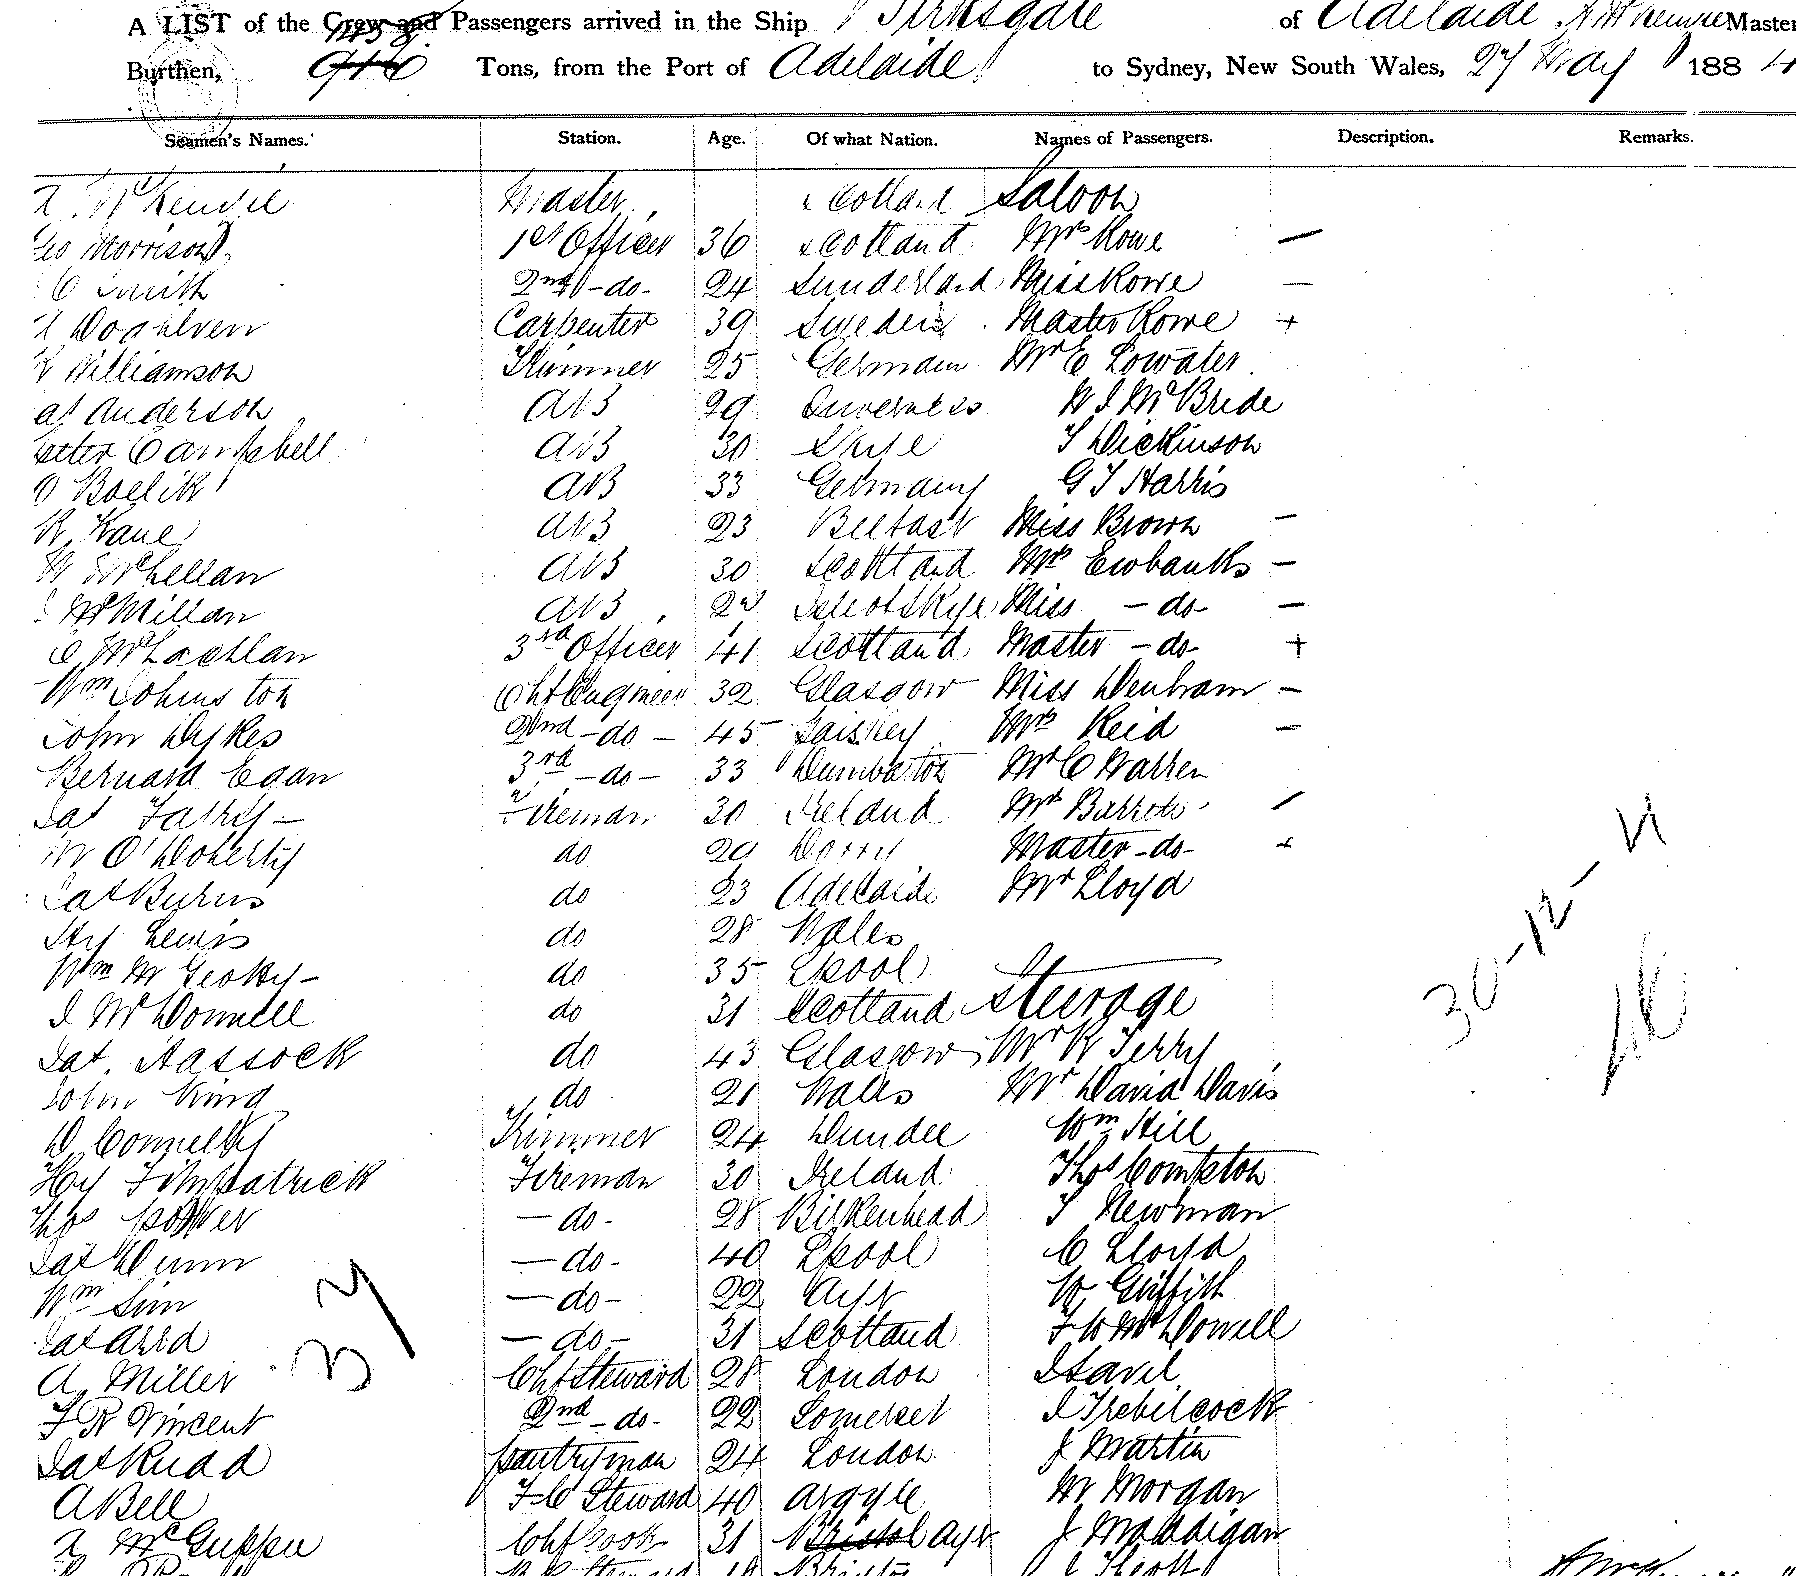 A LIST of the Crew and Passengers arrived in the Ship Birksgate of Adelaide A McKenzie Master
Burthen, Tons, from the Port of Adelaide to Sydney, New South Wales, 27 May 1884
Seamen's Names. Station. Age. Of what Nation. Names of Passengers. Description. Remarks.
A. McKenzie Master Scotland Saloon
Geo Morrison 1st Officer 36 Scotland Mrs Rowe —
C Smith 2nd -do- 24 Sunderland Miss Rowe —
Carpenter 39 Sweden Master Rowe +
R Williamson Trimmer 25 German Mr E Lowater
Anderson AB 29 Inverness W J McBride
Peter Campbell AB 30 Skye T Dickinson
AB 33 Germany G T Harris
R Kane AB 23 Belfast Miss Brown —
W McLellan AB 30 Scotland Mrs Ewbanks —
McMillan AB Isle of Skye Miss -do- —
C McLachlan 3rd Officer 41 Scotland Master -do- +
Wm Johnston Chf Engineer 32 Glasgow Miss Denham —
John Dykes 2nd -do- 45 Mrs Reid —
Bernard Egan 3rd -do- 33 Dumbarton Mr C Warren
Jas Fireman 30 Ireland Mrs
M O'Doherty do 29 Derry Master -do- +
Jas Burns do 23 Adelaide Mr Lloyd
Hy Lewis do 28 Wales
Wm do 35 Lpool
J McDonnell do 31 Scotland Steerage
Jas. Hassock do 43 Glasgow Mr R Terry
John King do 21 Wales Mr David Davis
D Connelly Trimmer 24 Dundee Wm Hill
Hy Fitzpatrick Fireman 30 Ireland Thos Compton
Thos Power -do- 28 Birkenhead T Newman
Jas Dunn -do- 40 Lpool C Lloyd
Wm Sim -do- 22 Ayr W Griffith
Jas -do- 31 Scotland F W McDowell
A Miller Chf Steward 28 London
F R Vincent 2nd -do- 22 Somerset J Trebilcock
Jas Rudd Pantryman 24 London J Martin
A Bell F C Steward 40 Argyle M Morgan
Chf Cook 31 Bristol Ayr J Maddigan
Bristol Scott
30-12-
37